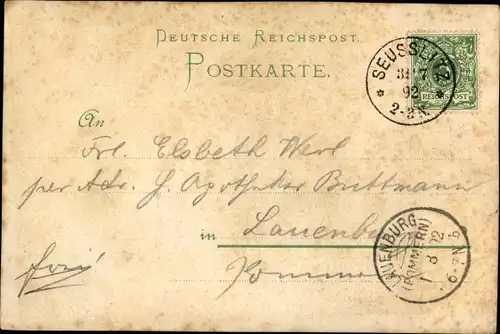 DEUTSCHE REICHSPOST.
POSTKARTE.
SEUSSLITZ
31 7
92
2-3N.
REICHSPOST
An
Frl. Elsbeth Werl
per Adr. H. Apotheker Buttmann
in Lauenburg
Pommern
frei
LAUENBURG
(POMMERN)
1 8 92
6-7N